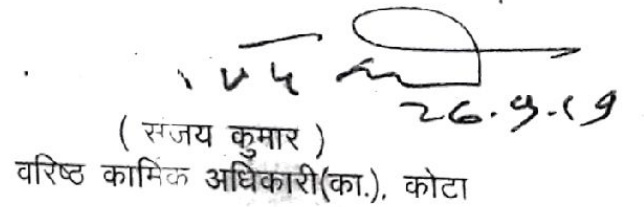 26.9.19
( संजय कुमार )
वरिष्ठ कार्मिक अधिकारी(का.), कोटा